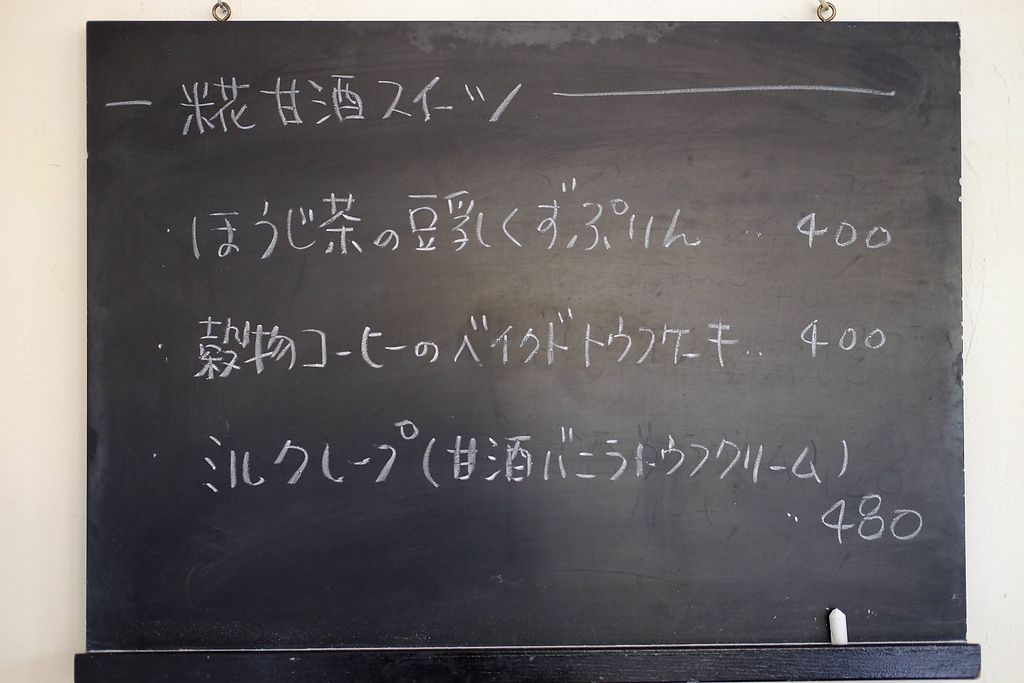 一 糀甘酒スイーツ ――
・ほうじ茶の豆乳くずぷりん ‥ 400
・穀物コーヒーのベイクドトウフケーキ‥ 400
・ミルクレープ(甘酒バニラトウフクリーム)
‥ 480